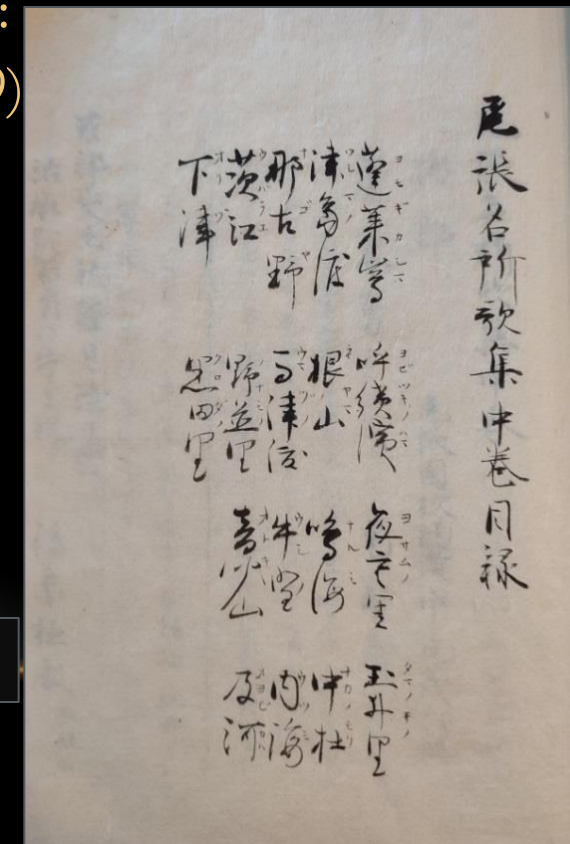 尾張名所歌集中卷目録
蓬莱嶌 呼續濱 夜寒里 玉井里
津嶌渡 根山 鳴海 中杜
那古野 馬津渡 内海
茨江 野並里 音聞山 及河
下津 黒田里